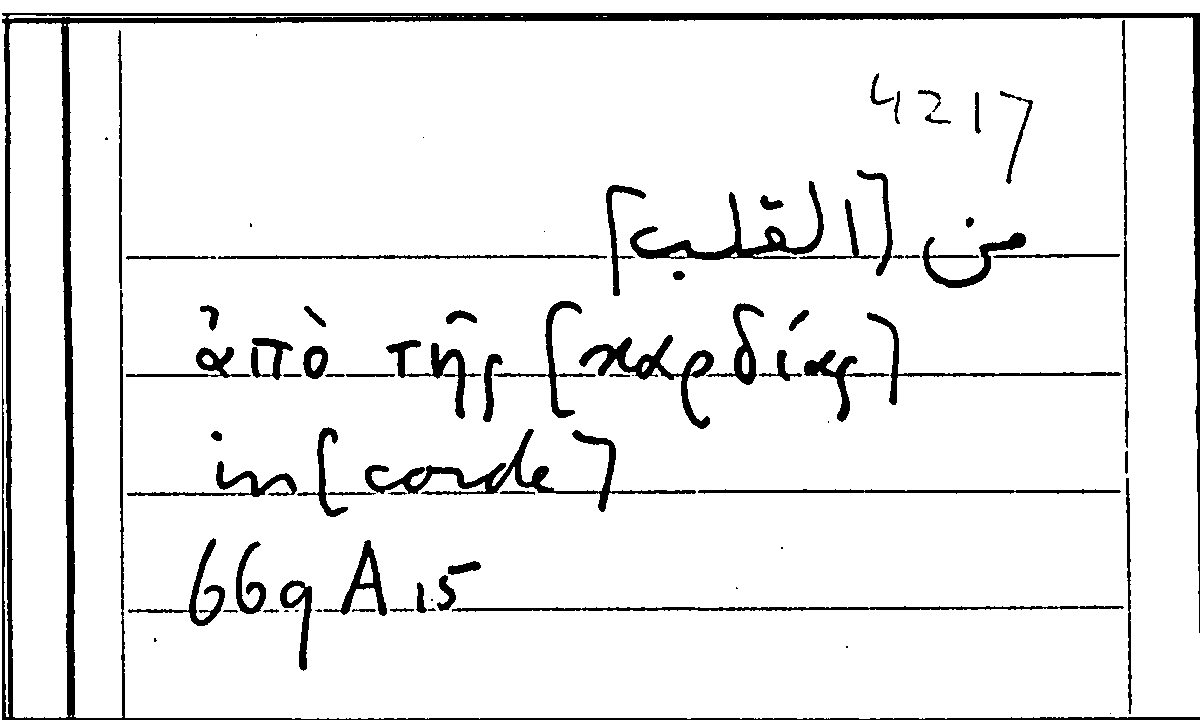 4217
من [القلب]
ἀπὸ τῆς [καρδίας]
in [corde]
669 A 15